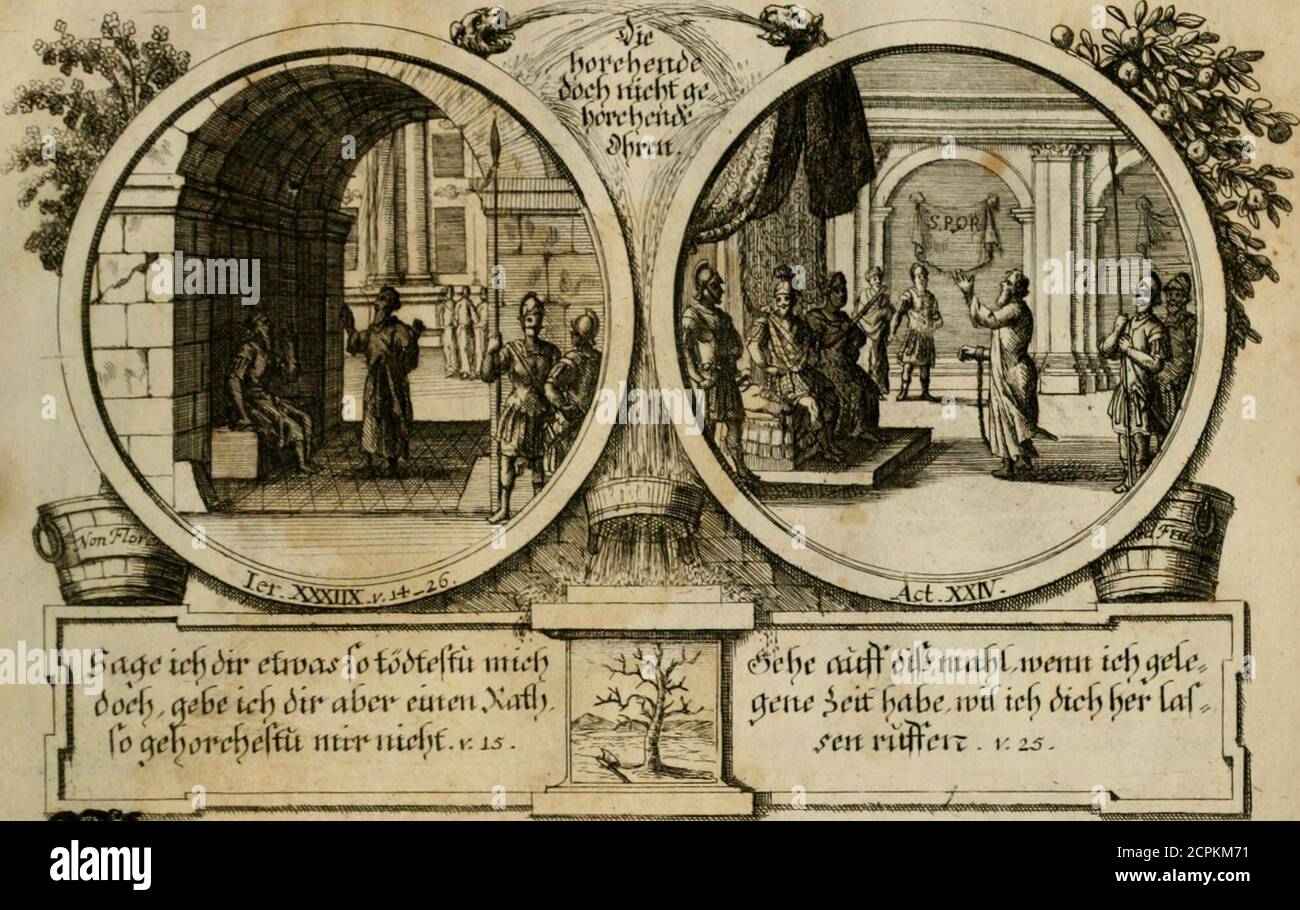 Die
horchende
doch nicht ge-
horchende
Ohren.
S.P.Q.R
Non Flore
Ier. XXXIIX. v. 14-26.
Act. XXIV.
Sage ich dir etwas so tödtestu mich
doch, gebe ich dir aber einen Rath,
so gehorchestu mir nicht. v. 15.
Gehe auff diß mahl, wenn ich gele-
gene Zeit habe, wil ich dich her las-
sen ruffen. v. 25.
alamy
alamy
Image ID: 2CPKM71
www.alamy.com